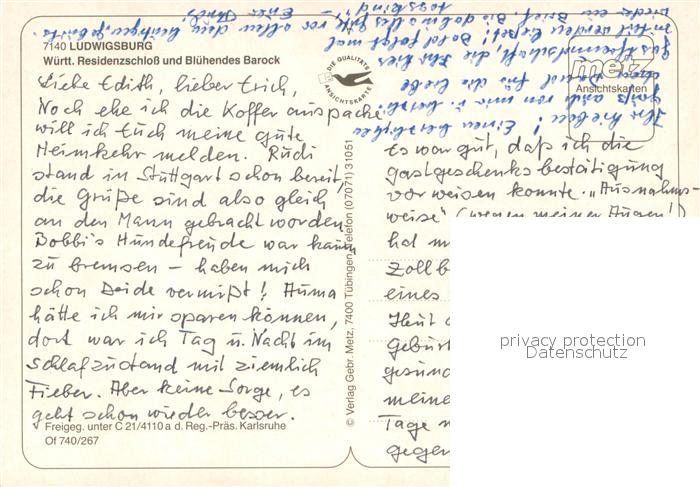 7140 LUDWIGSBURG
Württ. Residenzschloß und Blühendes Barock
DIE QUALITÄTS
ANSICHTSKARTE
metz
Ansichtskarten
Liebe Edith, lieber Erich,
Noch ehe ich die Koffer auspacke
will ich Euch meine gute
Heimkehr melden. Rudi
stand in Stuttgart schon bereit,
die Grüße sind also gleich
an den Mann gebracht worden.
Bobbi's Hundefreude war kaum
zu bremsen – haben mich
schon Beide vermißt! Auma
hätte ich mir sparen können,
dort war ich Tag u. Nacht im
Schlafzustand mit ziemlich
Fieber. Aber keine Sorge, es
geht schon wieder besser.
Freigeg. unter C 21/4110 a d. Reg.-Präs. Karlsruhe
Of 740/267
© Verlag Gebr. Metz, 7400 Tübingen, Telefon (07071) 31051
Es war gut, daß ich die
gastgeschenksbestätigung
vorweisen konnte. "Ausnahms-
weise" (wegen meiner Augen!)
hat m
Zoll b
eines
Heut
Geburt
gesund
meine
Tage
gegen
Ihr Lieben! Einen herzlichen
Gruß auch von mir u. herzl.
Dank für die liebe
Gastfreundschaft, die Ihr
mutti werden ließet! Bald folgt mal
wieder ein Brief. Bis dahin alles gute,
vor allem
privacy protection
Datenschutz